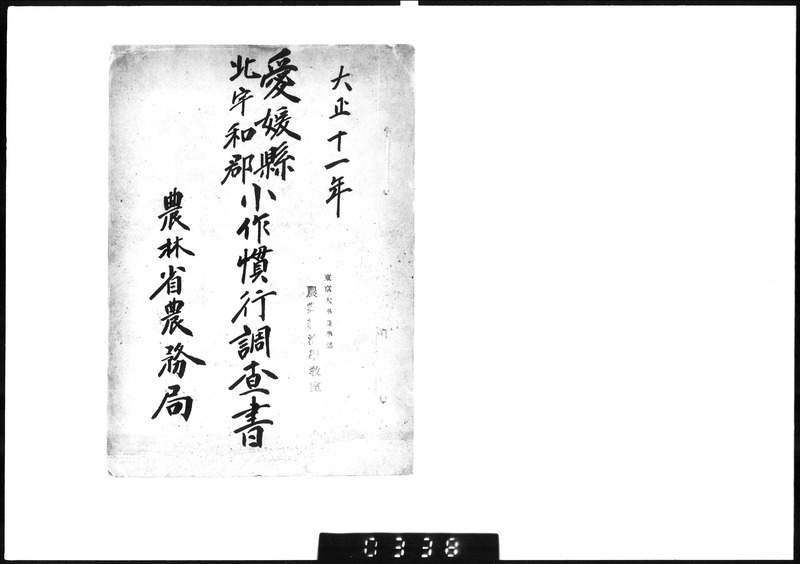 大正十一年
愛媛縣
北宇和郡
小作慣行調査書
農林省農務局
東京大學農學部
教室
0338